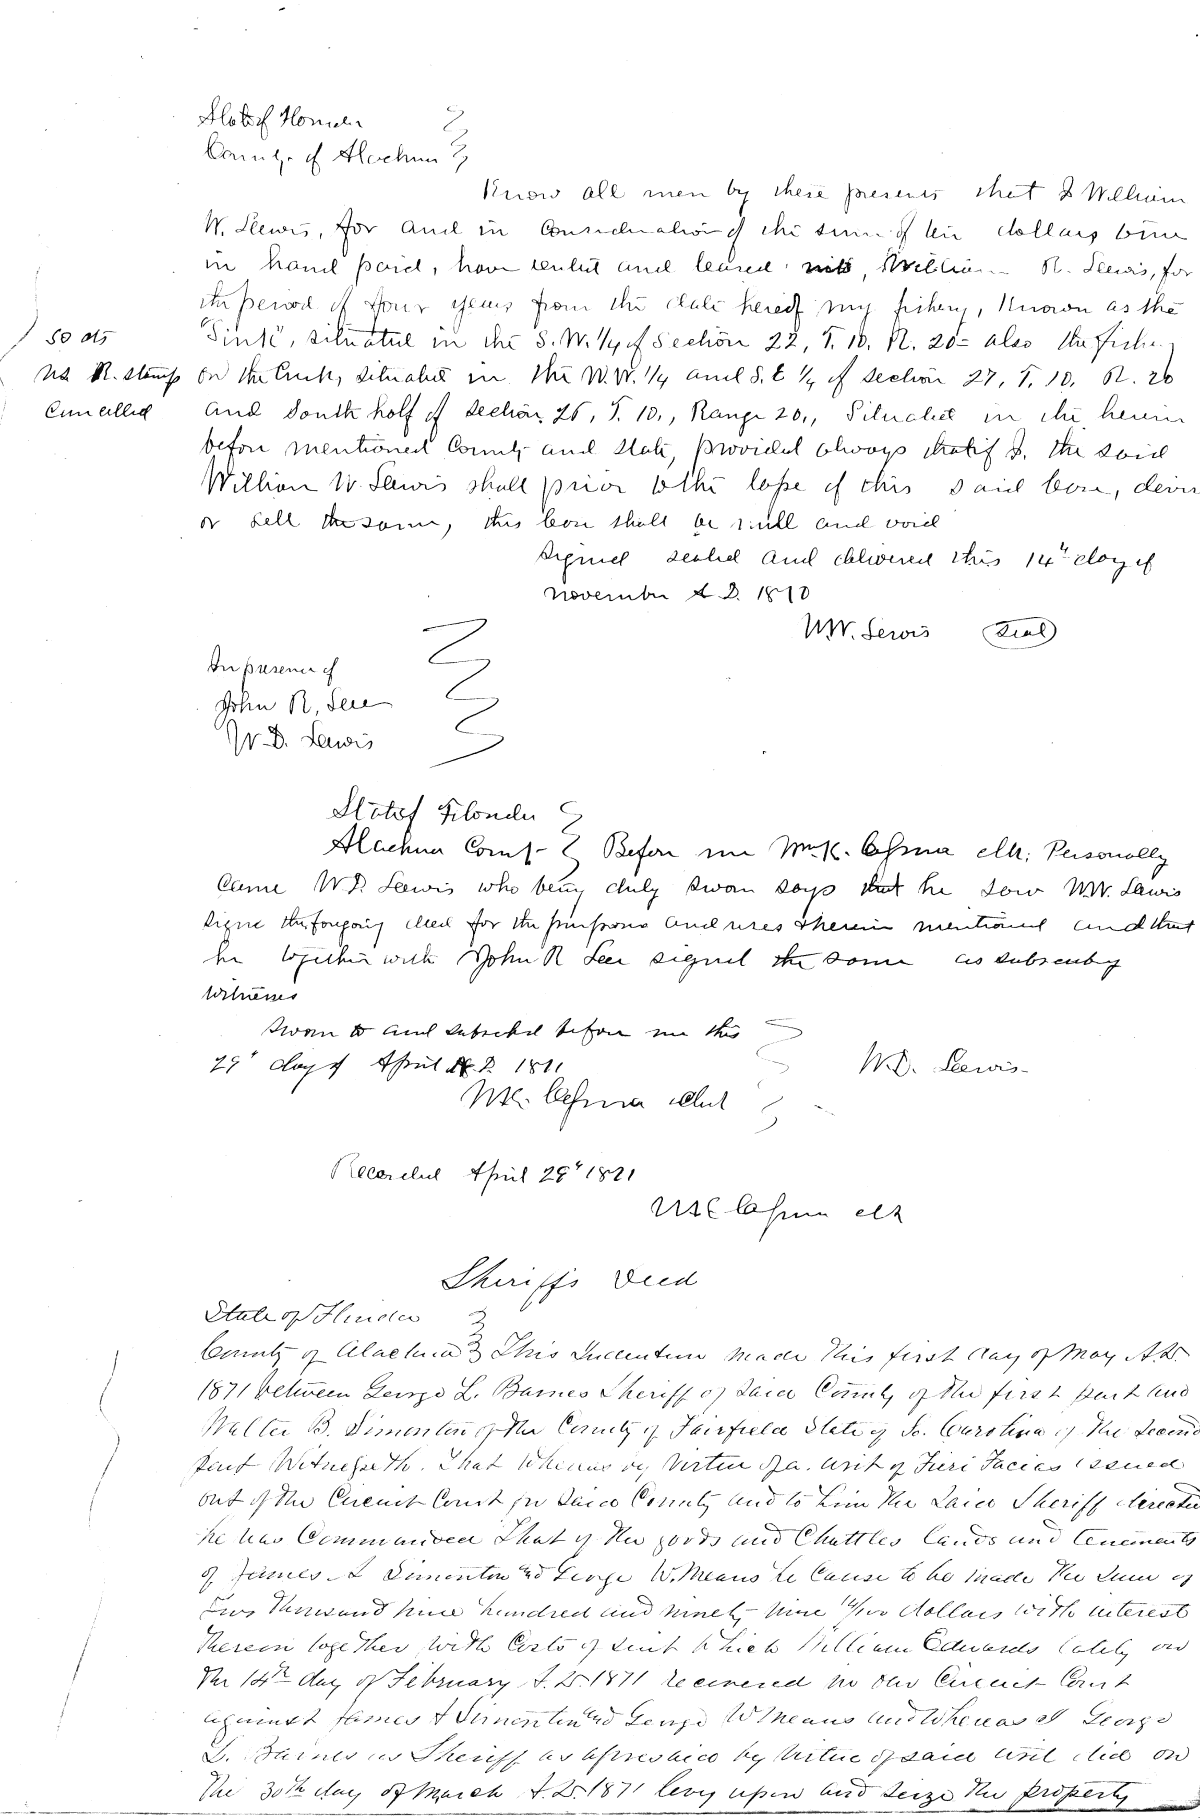 State of Florida
County of Alachua
Know all men by these presents that I William
W. Lewis, for and in consideration of the sum of ten dollars
in hand paid, have rented and leased unto, William R. Lewis, for
the period of four years from the date hereof my fishery, Known as the
"Sink", situated in the S.W. 1/4 of Section 22, T. 10. R. 20 - also the fishery
50 cts
US R. stamp
Cancelled
on the Creek, situated in the N.W. 1/4 and S.E 1/4 of section 27, T. 10. R. 20
and South half of section 26, T. 10., Range 20., Situated in the herein
before mentioned County and State, provided always that if I, the said
William W. Lewis shall prior to the lapse of this said lease,
or sell the same, this lease shall be null and void
Signed sealed and delivered this 14th day of
November A.D. 1870
W.W. Lewis (Seal)
In presence of
John R. Lee
W.D. Lewis
State of Florida
Alachua County Before me Wm K. Cessna clk; Personally
Came W.D. Lewis who being duly sworn says that he saw W.W. Lewis
signe the forgoing deed for the purposes and uses therein mentioned and that
he together with John R Lee signed the same as subscribing
witnesses
Sworn to and subscribed before me this
29th day of April A.D. 1871
W.D. Lewis
W.K. Cessna Clerk
Recorded April 29th 1871
W K Cessna clk
Sheriffs Deed
State of Florida
County of Alachua This Indenture made this first day of May A.D.
1871 between George L. Barnes Sheriff of said County of the first part and
Walter B. Simonton of the County of Fairfield State of So. Carolina of the Second
part Witnesseth. That Whereas by virtue of a writ of Fieri Facias issued
out of the Circuit Court for said County and to him the said Sheriff directed
he was Commanded That of the goods and Chattles lands and tenements
of James A Simonton and George W. Means he cause to be made the sum of
Two thousand nine hundred and ninety nine /100 dollars with interest
thereon together with Costs of suit which William Edwards lately on
the 14th day of February A.D. 1871 recovered in our Circuit Court
against James A Simonton and George W Means and Whereas I George
L. Barnes as Sheriff as aforesaid by virtue of said writ did on
the 30th day of March A.D. 1871 levy upon and seize the property